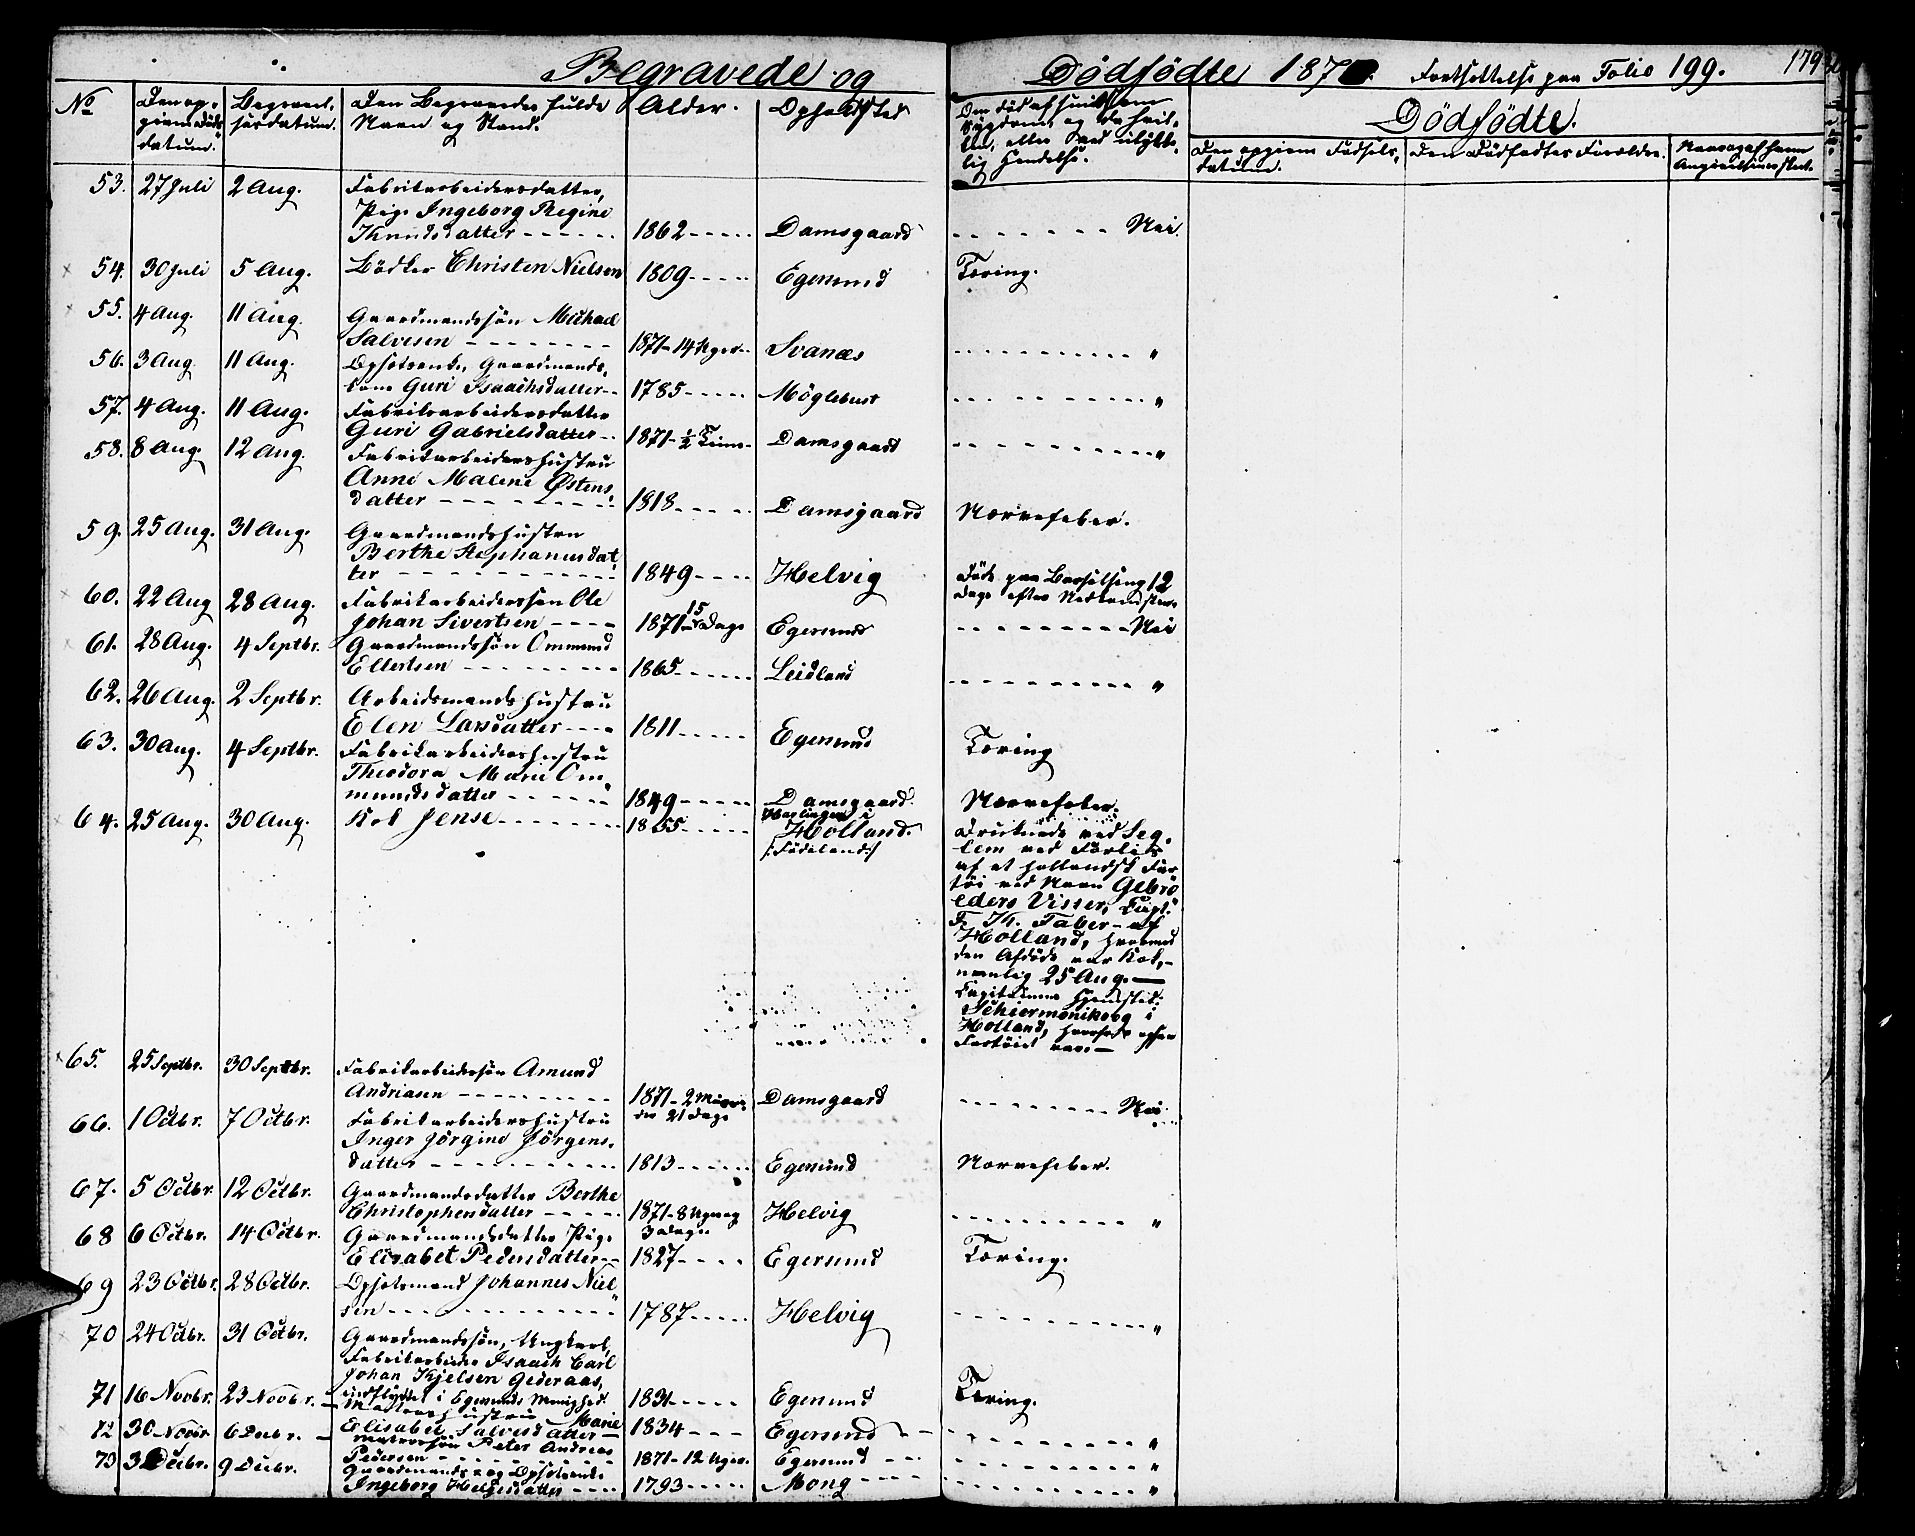 Begravede og
Dödfödte 1871. Fortsættelse paa Folio 199. 179
No
Den opgivne Döds datum.
Begravelsesdatum.
Den Begravedes fulde Navn og Stand.
Alder.
Opholdsted
Dödfödte.
Den opgivne Fødsels-datum.
Den Dödfødtes Forældre.
53. 27 Juli 2 Aug. Fabrikarbeidersdatter,
Pige Ingeborg Regine
Knudsdatter 1862 Damsgaard Nei.
54. 30 Juli 5 Aug. Bödker Christen Nielsen 1809 Egersund Tæring.
55. 4 Aug. 11 Aug. Gaardmandssön Michael
Salvesen 1871 - 14 Uger Svanæs "
56. 3 Aug. 11 Aug. Opsötsenke, Gaardmands-
kone Guri Isaachsdatter 1785 Möglebust "
57. 4 Aug. 11 Aug. Fabriksarbeidersdatter
Guri Gabrielsdatter 1871 - ½ Time Damsgaard "
58. 8 Aug. 12 Aug. Fabrikarbeidershustru
Anne Malene Østens-
datter 1818 Damsgaard Nervefeber.
59. 25 Aug. 31 Aug. Gaardmandshustru
Berthe Stephanusdat-
ter 1849 Helvig Döde paa Barselseng 12
Dage efter Nedkomsten.
60. 22 Aug 28 Aug. Fabrikarbeiderssön Ole
Johan Sivertsen 1871 - 15 Dage Egersund Nei
61. 28 Aug. 4 Septbr. Gaardmandssön Ommund
Ellertsen 1865 Leidland "
62. 26 Aug. 2 Septbr. Arbeidsmandshustru
Elen Larsdatter 1811 Egersund Tæring
63. 30 Aug. 4 Septbr. Fabrikarbeidershustru
Theodora Marie Om-
mundsdatter 1849 Damsgaard. Nervefeber.
64. 25 Aug. 30 Aug. Kok Jense 1855 Harlingen i
Holland.
/: Födeland :/
Druknede ved Seg-
lem ved Forlis
af et hollandsk Far-
töi ved Navn Gebrö
eders Visser, Capt.
F. Th. Faber - af
Holland, hvormed
den Afdöde var Kok,-
nemlig 25 Aug. —
Capitainens Hjemsted:
Schiermonikoog i
Holland, hvorfra ogsaa
Fartöiet var. —
65. 25 Septbr. 30 Septbr. Fabrikarbeiderssön Amund
Andriasen 1871 - 2 Maane-
der 21 Dage Damsgaard Nei.
66. 1 Octbr. 7 Octbr. Fabrikarbeidershustru
Inger Jörgine Jörgens-
datter 1813 Egersund Nervefeber.
67. 5 Octbr. 12 Octbr. Gaardmandsdatter Berthe
Christophersdatter 1871 - 8 Uger og
3 Dage. Helvig "
68 6 Octbr. 14 Octbr. Gaardmandsdatter Pige
Elisabet Pedersdatter 1827 Egersund Tæring.
69 23 Octbr. 28 Octbr. Opsötsmand Johannes Niel-
sen 1787 Helvig "
70 24 Octbr. 31 Octbr. Gaardmandssön, Ungkarl,
Fabrikarbeider Isaach Carl
Johan Kjelsen Gederaas,
indflyttet i Egersunds Menighed. 1831 Egersund Tæring.
71 16 Novbr. 23 Novbr. Matroshustru Marie
Elisabet Salvesdatter 1834 Egersund "
72 30 Novbr. 6 Decbr. Matrossön Peter Andreas
Pedersen 1871 - 12 Uger. Egersund "
73 3 Decbr. 9 Decbr. Gaardmands- og Opsötsenke
Ingeborg Helgesdatter 1793 Mong "